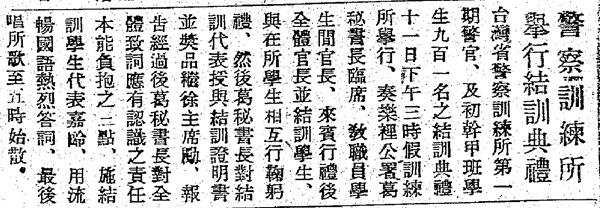 警察訓練所
舉行結訓典禮
台灣省警察訓練所第一
期警官、及初幹甲班學
生九百一名之結訓典禮
十一日下午三時假訓練
所舉行、奏樂裡公署葛
秘書長臨席、敎職員學
生間官長、來賓行禮後
全體官長並結訓學生、
與在所學生相互行鞠躬
禮、然後葛秘書長對結
訓代表授與結訓證明書
並奬品繼徐主席勵、報
告經過後葛秘書長對全
體致詞應有認識之責任
本能負抱之三點、施結
訓學生代表嘉聆、用流
暢國語熱烈答詞、最後
唱所歌至五時始散。